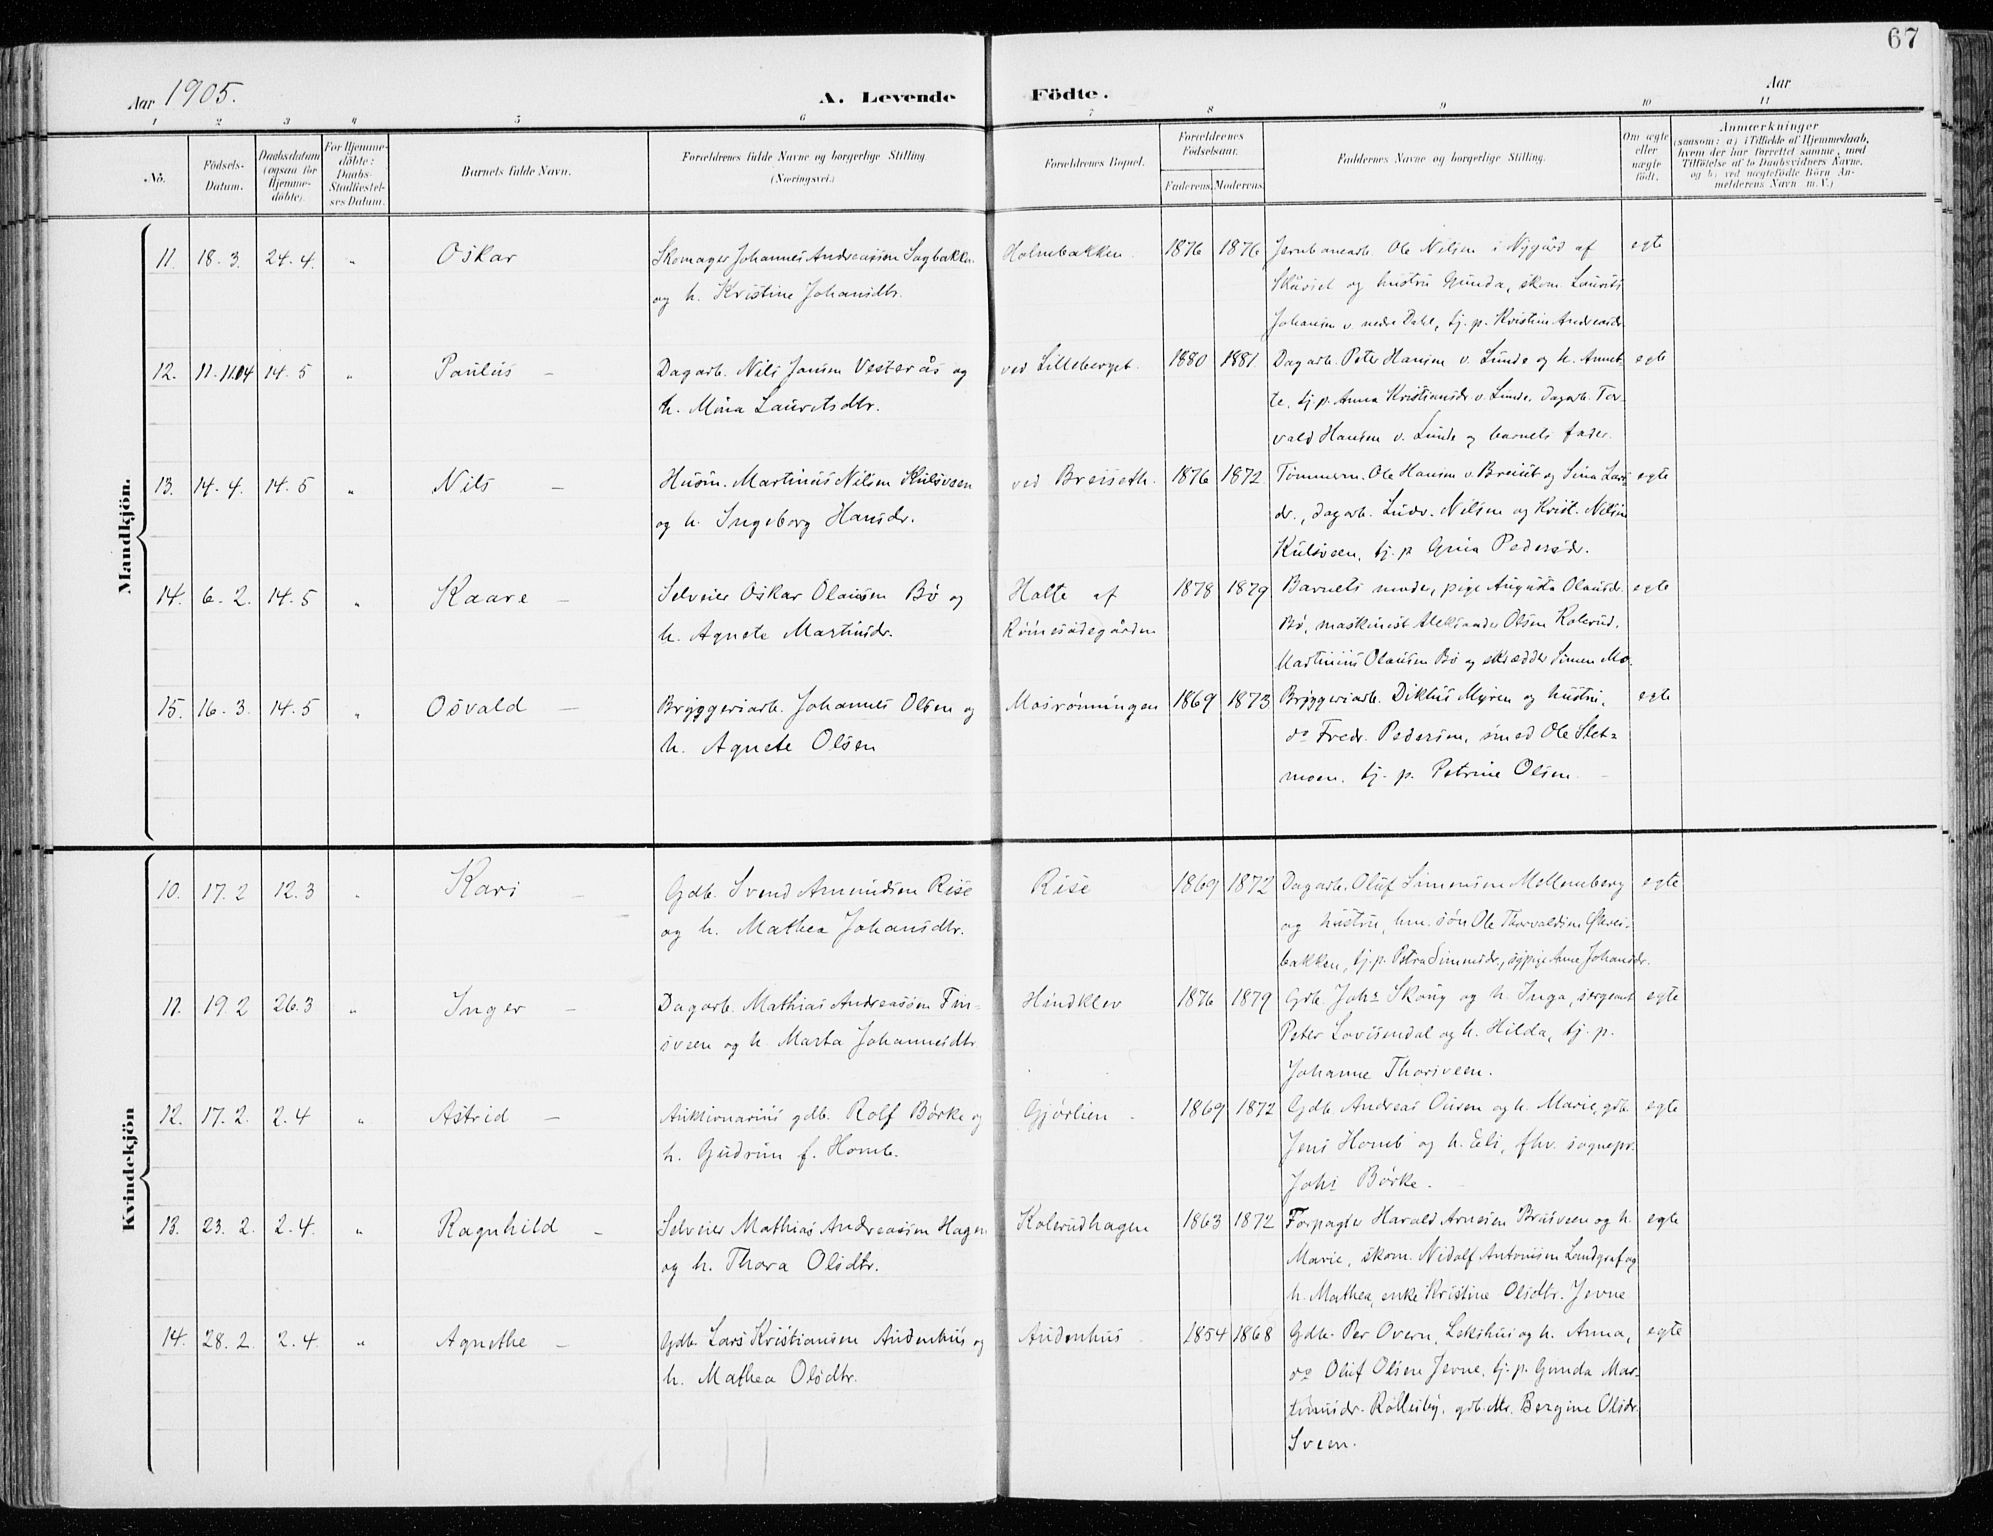 67
Aar 1905.
A. Levende Födte.
Aar
1 2 3 4 5 6 7 8 9 10 11
No.
Födsels-
Datum.
Daabsdatum
(ogsaa for
Hjemme-
döbte).
For Hjemme-
döbte:
Daabs-
Stadfæstel-
ses Datum.
Barnets fulde Navn.
Forældrenes fulde Navne og borgerlige Stilling
(Næringsvei.)
Forældrenes Bopæl.
Forældrenes
Födselsaar.
Faderens. Moderens.
Faddernes Navne og borgerlige Stilling.
Om ægte
eller
uægte
födt.
Anmærkninger
(saasom: a) i Tilfælde af Hjemmedaab,
hvem der har forrettet samme, med
Tilföielse af to Daabsvidners Navne,
og b) ved uægtefödte Börn An-
melderens Navn m. V.)
Mandkjön.
11. 18. 3. 24. 4. " Oskar
Skomager Johannes Andreassen Sagbakken
og h. Kristine Johansdtr.
Holmebakken. 1876 1876
Jernbanearb. Ole Nilsen i Nygård af
Skåset og hustru Gunda, skom. Laurits
Johansen v. nedre Dahl, tj. p. Kristine Andreasdr.
egte
12. 11. 11.04 14. 5 " Paulus –
Dagarb. Nils Jansen Vesterås og
h. Mina Lauritsdtr.
ved Lilleberget. 1880 1881.
Dagarb. Peter Hansen v. Lunde og h. Annet-
te, tj. p. Anna Kristiansdr v. Lunde, dagarb. Tor-
vald Hansen v. Lunde og barnets fader.
egte
13. 14. 4. 14. 5 " Nils –
Husm. Martinus Nilsen Kulsveen
og h. Ingeborg Hansdr.
ved Breiseth. 1876 1872
Tømmerm. Ole Hansen v. Breiset og Sina Lars
dr., dagarb. Ludv. Nilsen og Krist. Nilsen
Kulsveen, tj. p Grina Pedersdr.
egte
14. 6. 2. 14. 5 " Kaare –
Selveier Oskar Olausen Bø og
h. Agnete Martinsdr.
Holte af
Rømesødegården
1878 1879
Barnets moder, pige Augusta Olausdr.
Bø, maskinist Aleksander Olsen Kolerud,
Martinius Olausen Bø og skrædder Simen Mo.
egte
15. 16. 3. 14. 5 " Osvald –
Bryggeriarb. Johannes Olsen og
h. Agnete Olsen
Mosrønningen 1869 1873
Bryggeriarb. Diktus Myren og hustru,
do Fredr. Pedersen, smed Ole Slet=
moen. tj. p. Petrine Olsen.
egte
Kvindekjön
10. 17. 2 12. 3 " Kari –
Gdb. Svend Amundsen Rise
og h. Mathea Johansdtr.
Rise 1869 1872
Dagarb. Oluf Simensen Mellemberg
og hustru, hm. søn Ole Thorvaldsen
bakken, tj. p. Petra Simensdr., sypige Anne Johansdr.
egte
11. 19. 2 26. 3 " Inger –
Dagarb. Mathias Andreassen Fin-
sveen og h. Marta Johannesdtr
Håndklev 1876 1879
Gdb. Johs Skoug og h. Inga, sergeant
Peter Lovisendal og h. Hilda, tj. p.
Johanne Thorsveen.
egte
12. 17. 2. 2. 4 " Astrid –
Auktionarius gdb. Rolf Børke og
h. Gudrun f. Homb.
Gjørlien. 1869 1872
Gdb. Andreas Onsen og h. Marie, gdb.
Jens Homb og h. Eli, fhv. sognepr.
Johs Børke.
egte
13. 23. 2. 2. 4. " Ragnhild –
Selveier Mathias Andreassen Hagen
og h. Thora Olsdtr.
Kolerudhagen 1863 1872
Forpagter Harald Arnesen Brusveen og h.
Marie, skom. Nidolf Antonsen Landgraf og
h. Mathea, enke Kristine Olsdtr. Jevne
egte
14. 28. 2. 2. 4. " Agnethe –
Gdb. Lars Kristiansen Audenhus og
h. Mathea Olsdtr.
Audenhus 1854 1868
Gdb. Per Overn, Lekshus og h. Anna,
do Oluf Olsen Jevne, tj. p. Gunda Mar-
tinusdr. Rolleiby, gdb. M. Bergine Olsdr.
Sveen.
egte